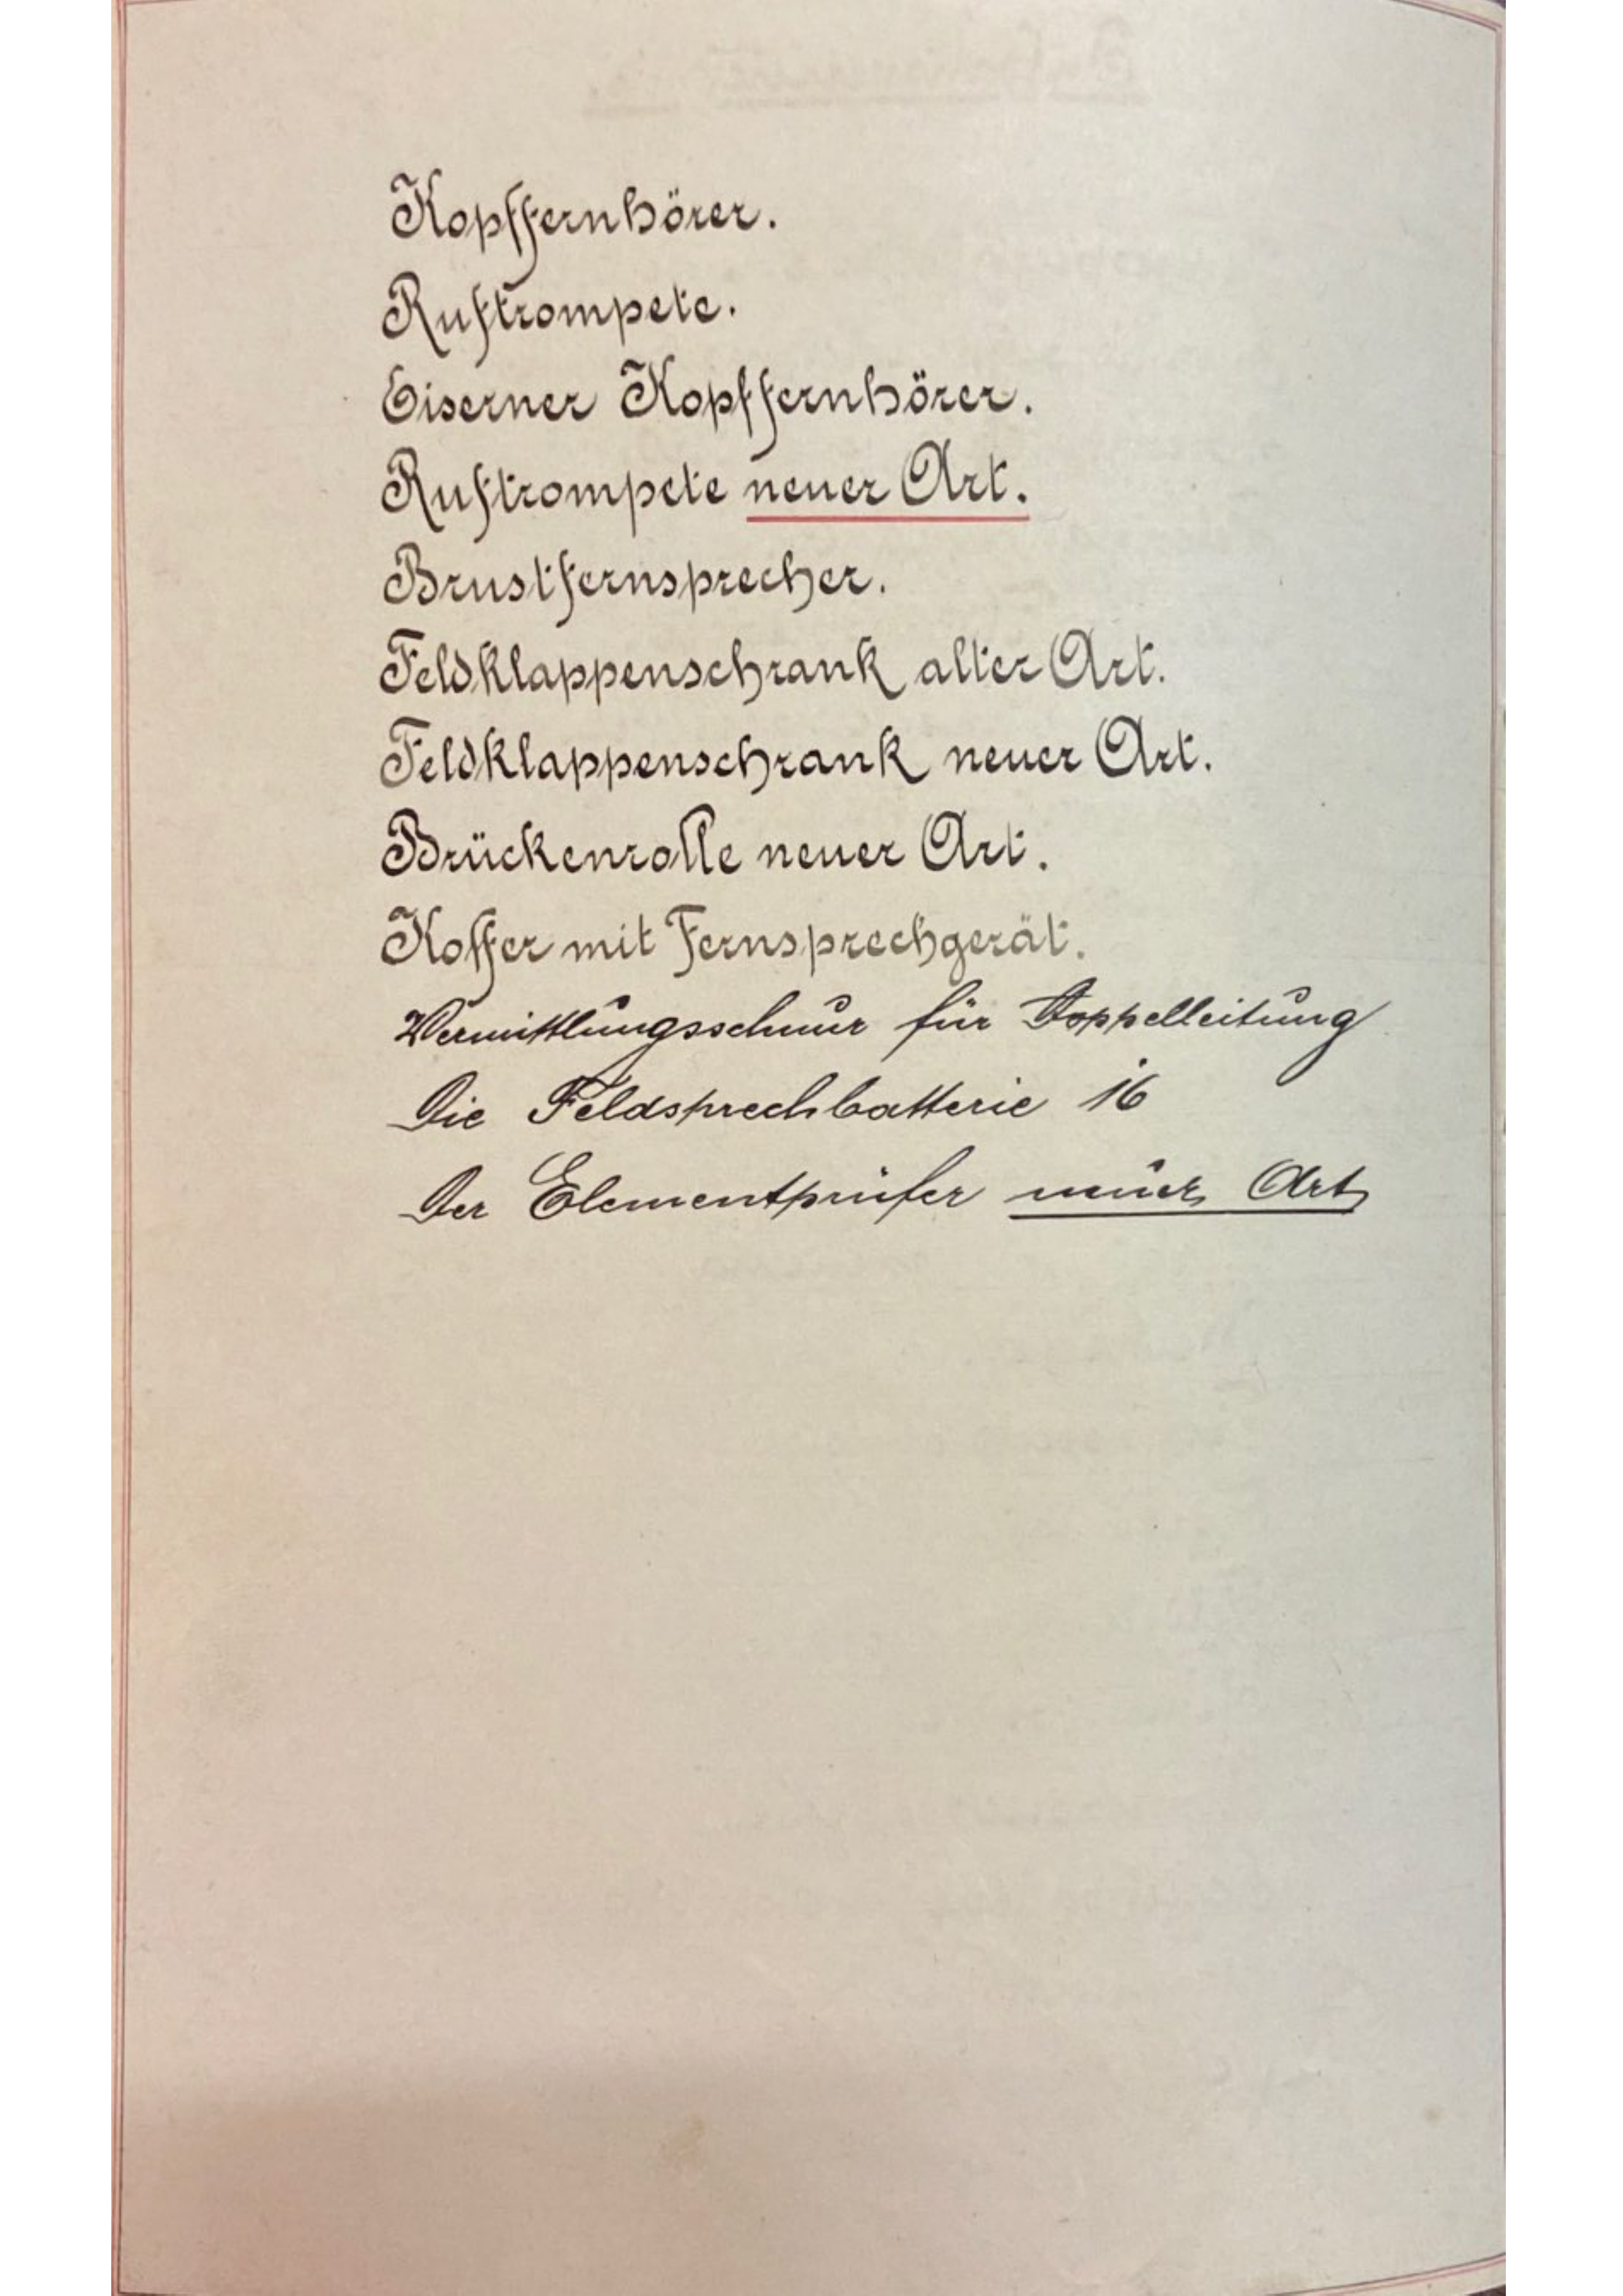 Kopffernhörer.
Ruftrompete.
Eiserner Kopffernhörer.
Ruftrompete neuer Art.
Brustfernsprecher.
Feldklappenschrank alter Art.
Feldklappenschrank neuer Art.
Brückenrolle neuer Art.
Koffer mit Fernsprechgerät.
Vermittlungsschnur für Doppelleitung
Die Feldsprechbatterie 16
Der Elementprüfer neuer Art